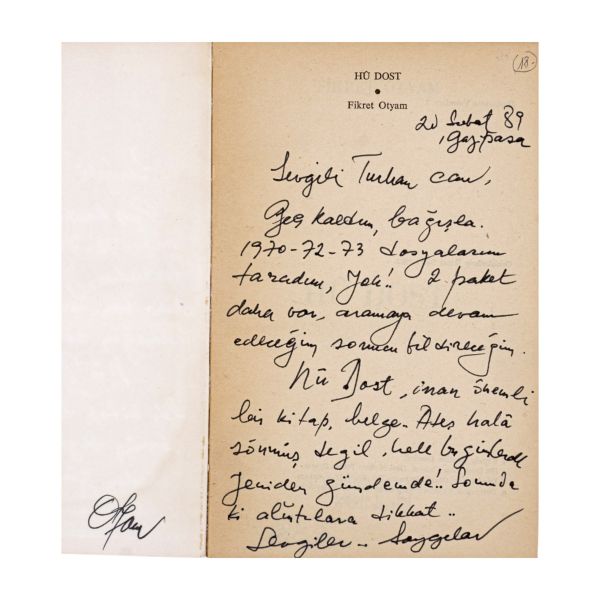 18.
HÛ DOST
Fikret Otyam
20 Şubat 89
Gazipaşa
Sevgili Turhan can,
Geç kaldım, bağışla.
1970-72-73 dosyalarını
taradım, Yok!! 2 paket
daha var, aramaya devam
edeceğim sonucu bildireceğim.
Hû Dost, inan önemli
bir kitap, belge. Ateş halâ
sönmüş değil, hele bugünlerde
yeniden gündemde!! Sonunda
ki alıntılara dikkat..
Sevgiler.. Saygılar
Otyam